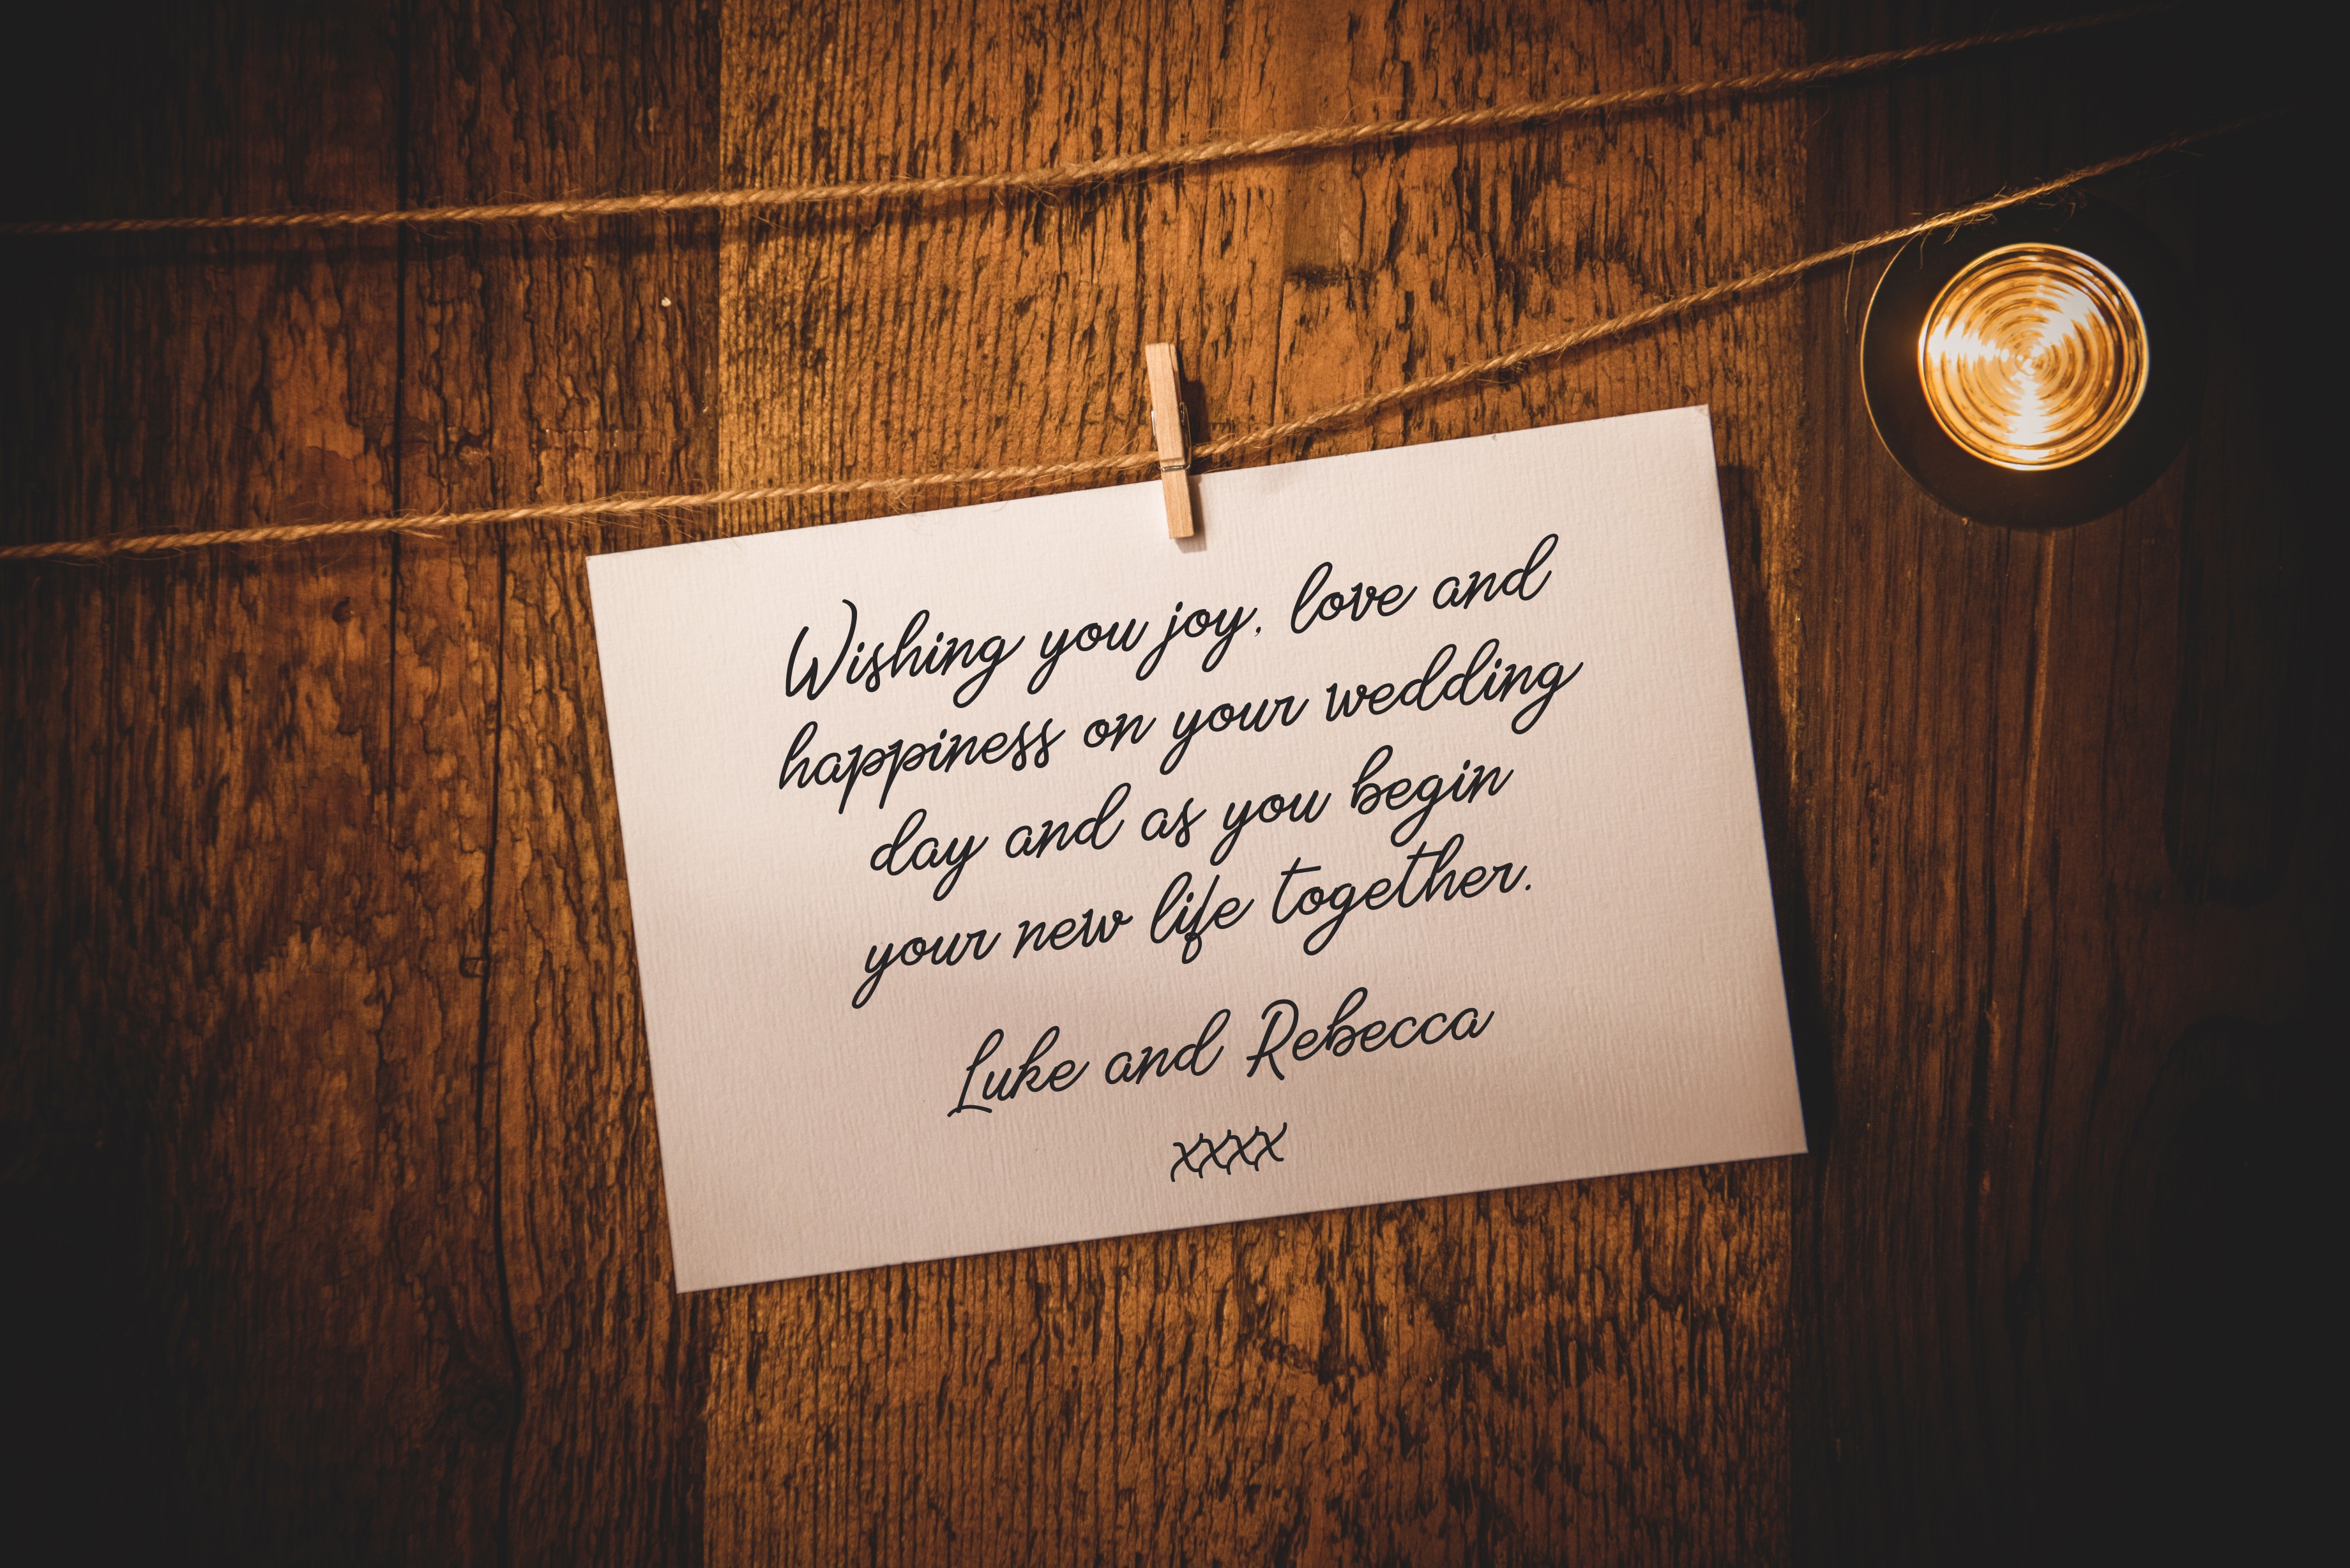 Wishing you joy, love and
happiness on your wedding
day and as you begin
your new life together.
Luke and Rebecca
xxxx